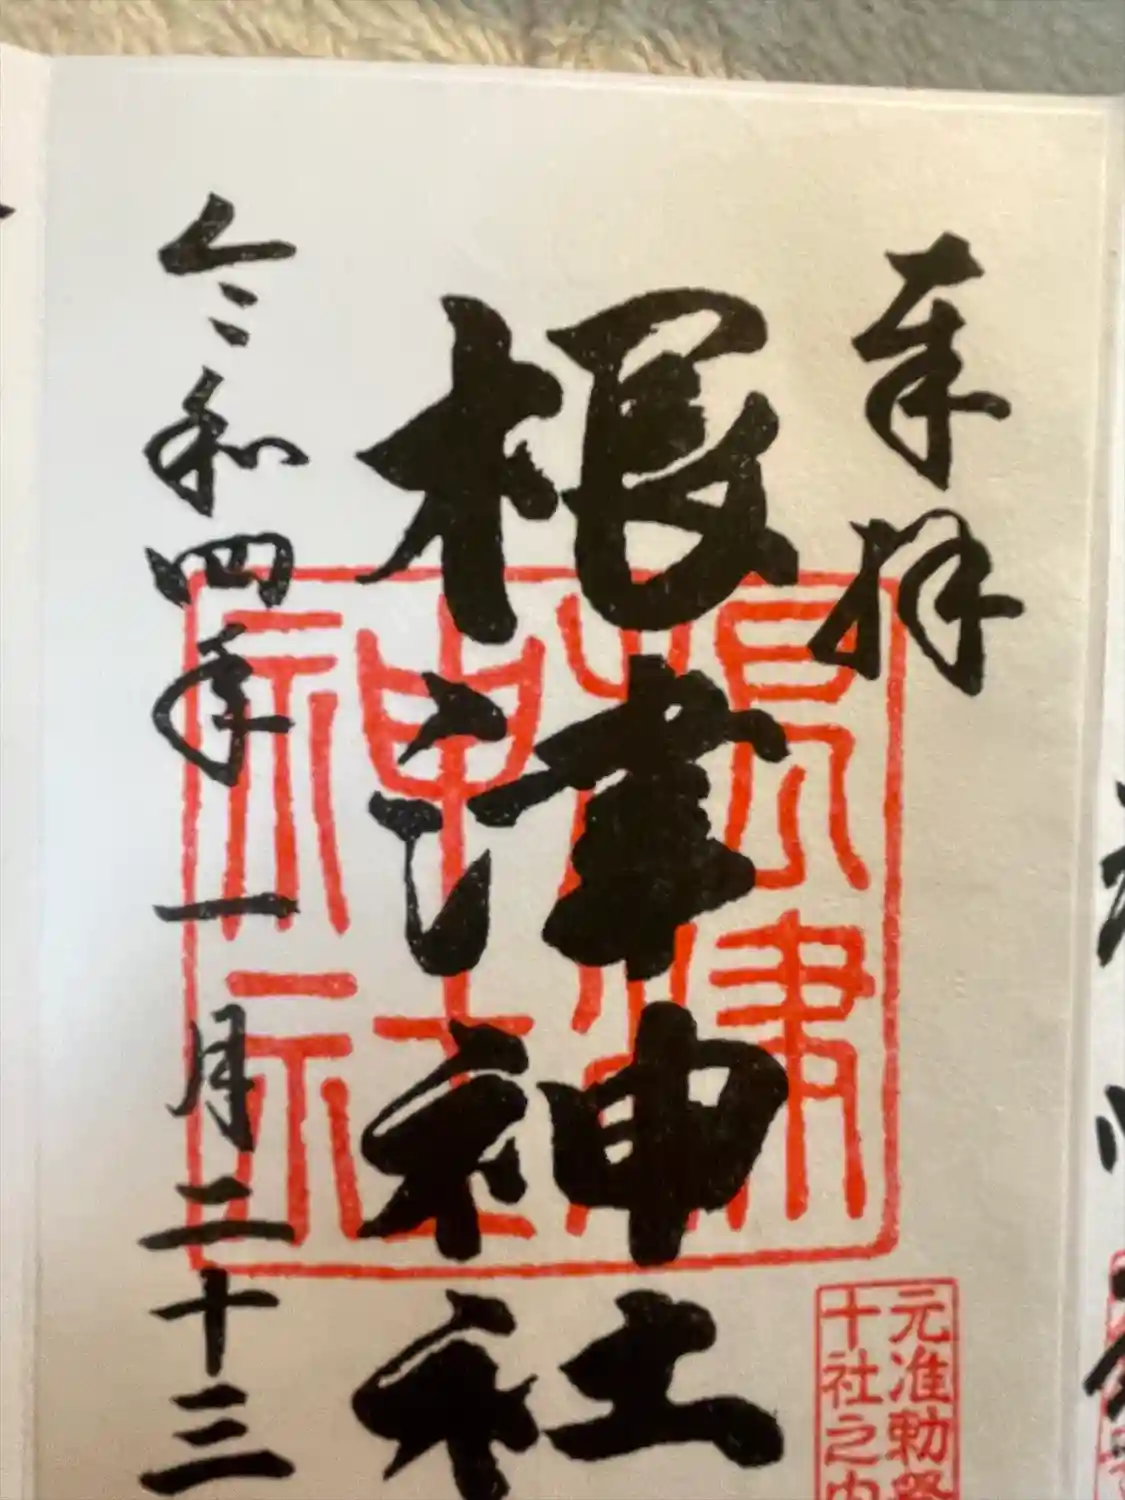 奉拝
根津神社
根津神社
令和四年一月二十三
元准勅祭
十社之内